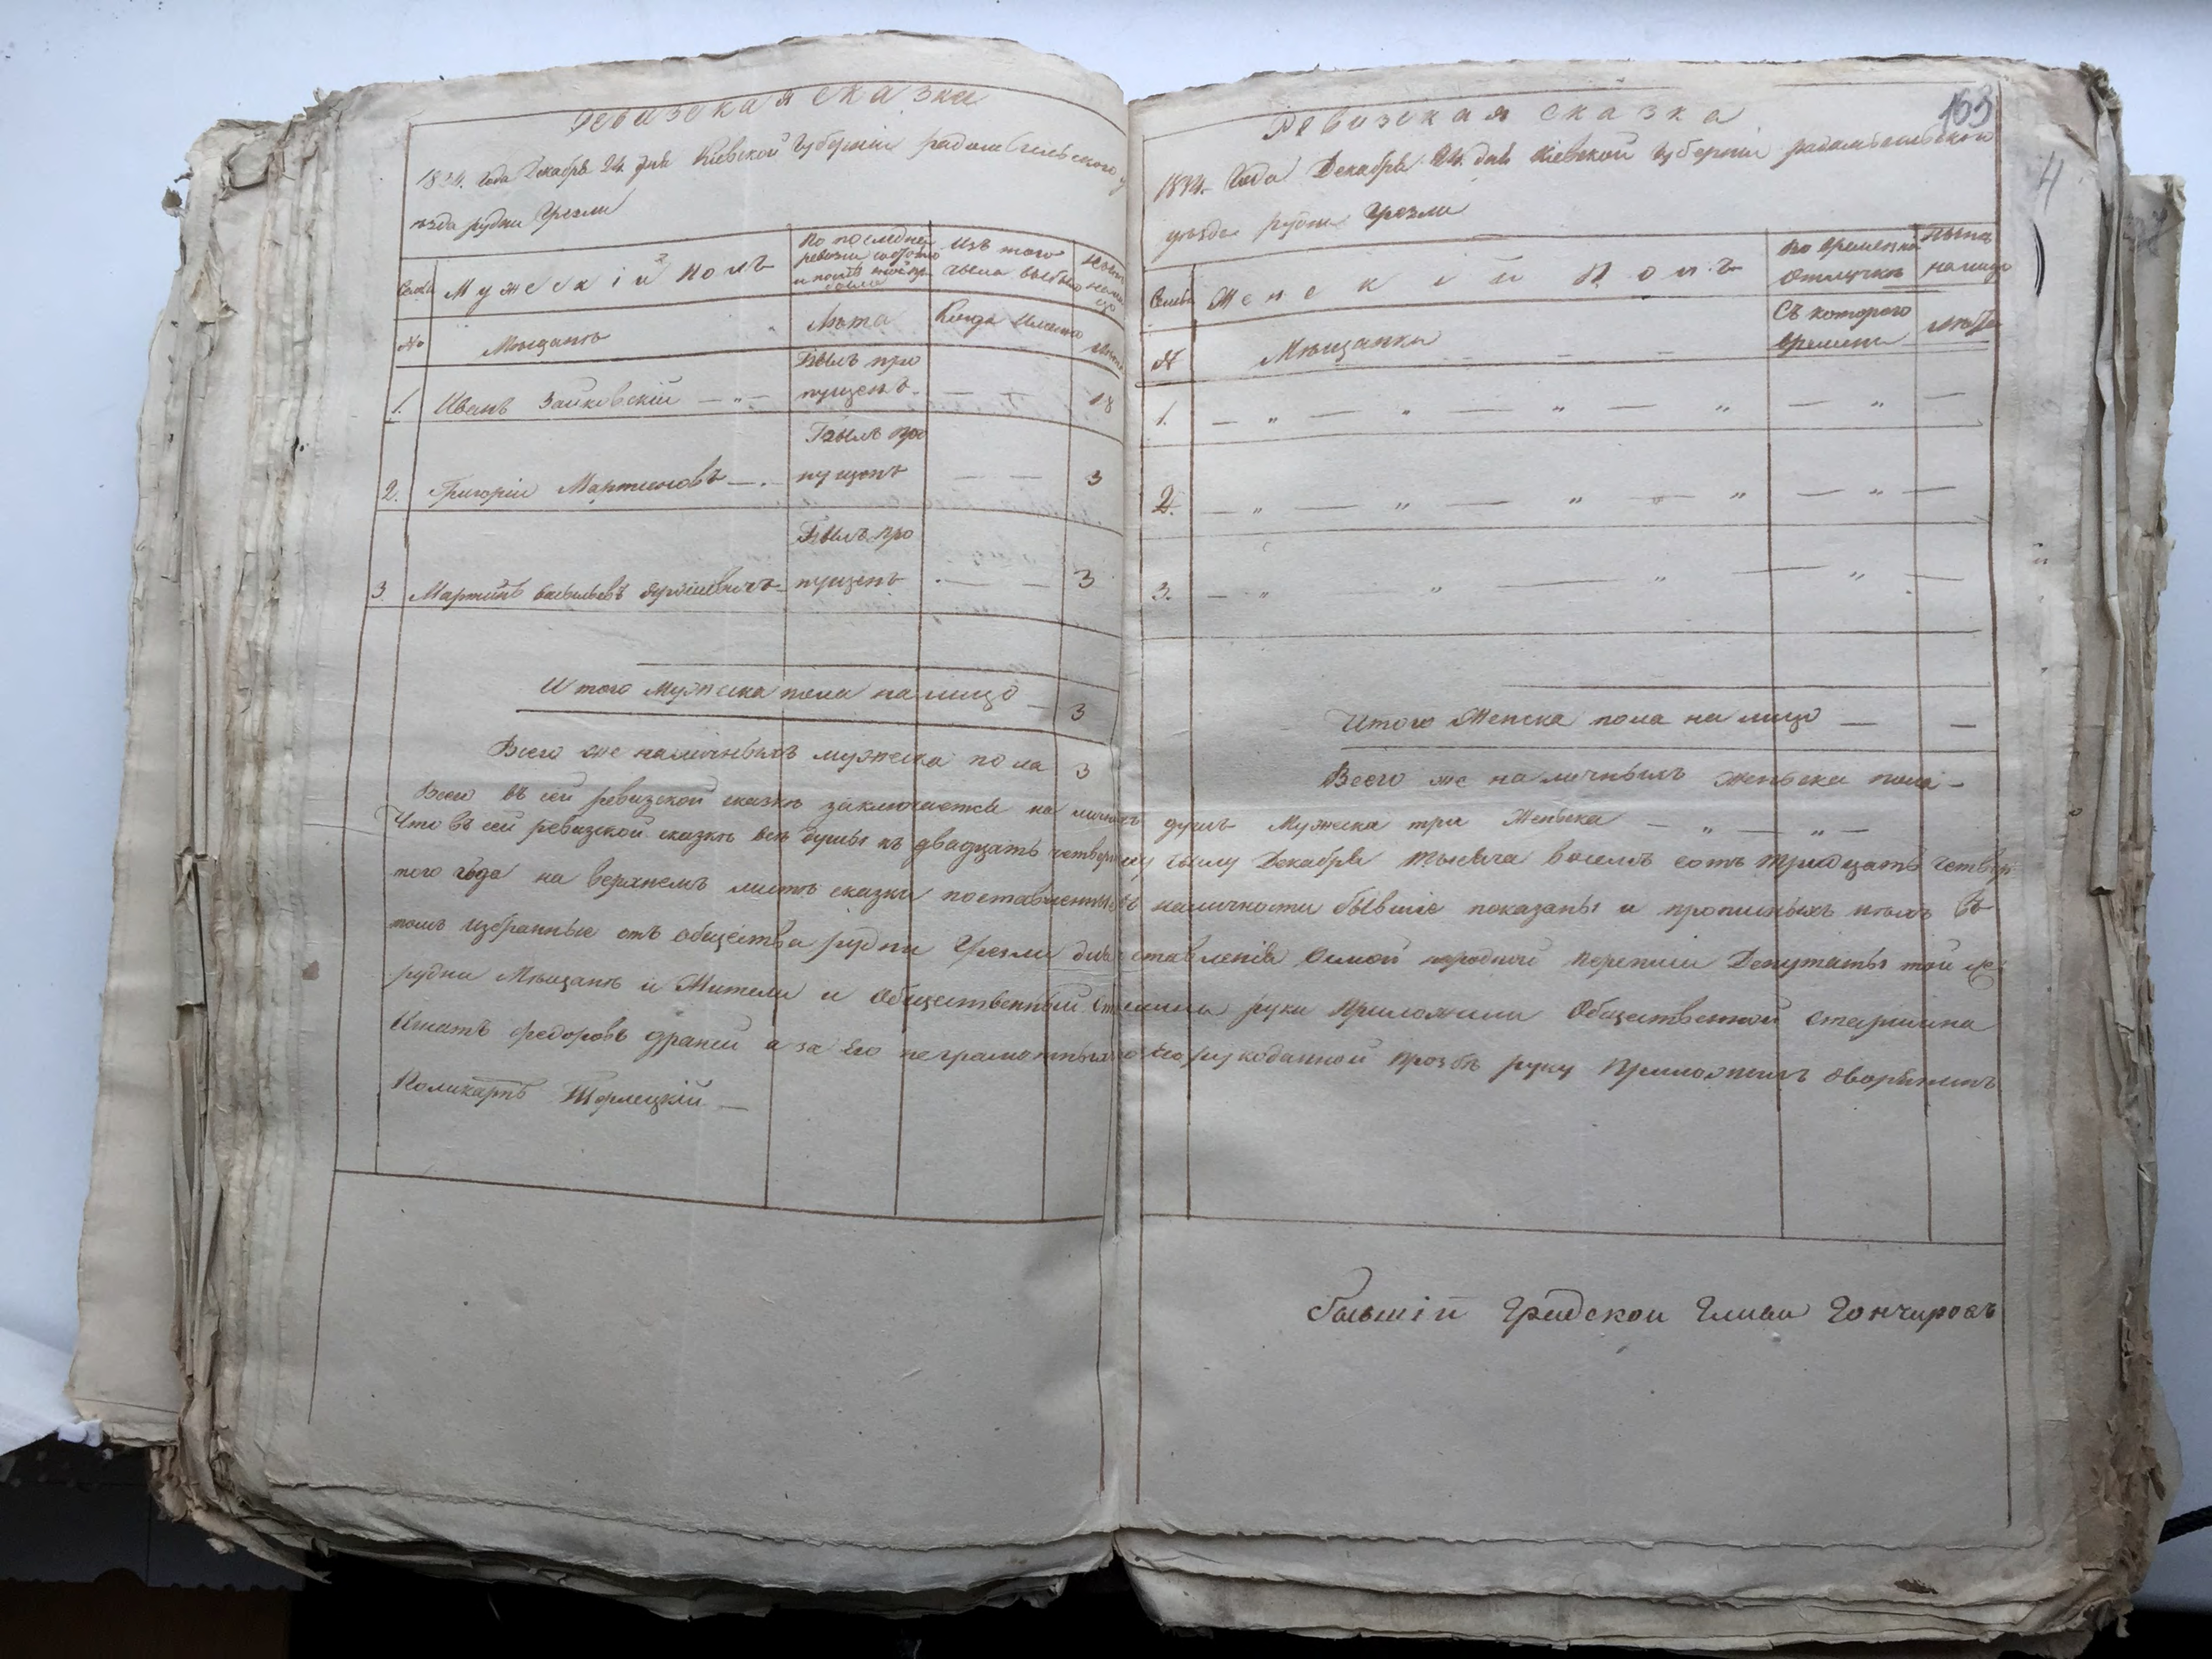 Ревизская сказка
1834. Года Декабря 24. дня Кіевской Губерніи радомысльского у
ѣзда рудни Грезли
Семьи
Мужескій полъ
По последней ревизіи состояло и после того прибыло
Изъ того числа выбыло
Ныне на лицо
№
Мѣщанѣ
Лѣта
Когда имянно
лѣта
1. Иванъ Зайковскій — „ — Былъ пропущенъ. — — 18
2. Григорій Мартиновъ — . Былъ пропущенъ — — 3
3. Мартинъ васильевъ Былъ пропущенъ . — — 3
Итого мужеска пола на лицо — 3
Всего же наличныхъ мужеска пола 3
Ревизская сказка
163
4
1834. Года Декабря 24. дня Кіевской Губерніи радомысльского
уѣзда рудни Грезли
Семьи
Женскій Полъ
Во временной отлучкѣ
Ныне на лицо
№
Мѣщанки
Съ которого времени
лѣта
1. — „ — „ — „ — „ — „ —
2. — „ — „ — „ — „ — „ —
3. — „ „ — „ — „ —
Итого Женска пола на лицо — —
Всего же наличныхъ женьска пола —
Всего въ сей ревизской сказкѣ заключается на личныхъ душъ Мужеска три Женьска — „ — „ —
Что въ сей ревизской сказкѣ всѣ души къ двадцать четвертому числу Декабря тысяча восемъ сотъ тридцать четвер
того года на верхнемъ листѣ сказки поставленныя въ наличности бывшіе показаны и прописныхъ нѣтъ въ
томъ избранные отъ общества рудни Грезли для ставленія осмой народной переписи Депутаты той же
рудни Мѣщанѣ и Жители и Общественный Старшина руки приложили Общественной старшина
Игнатъ федоровъ а за его неграмотнаго его рукоданной прозбѣ руку Приложилъ дворянинъ
Поликарпъ Терлецкій —
бывшій Градской Глава Гончаровъ